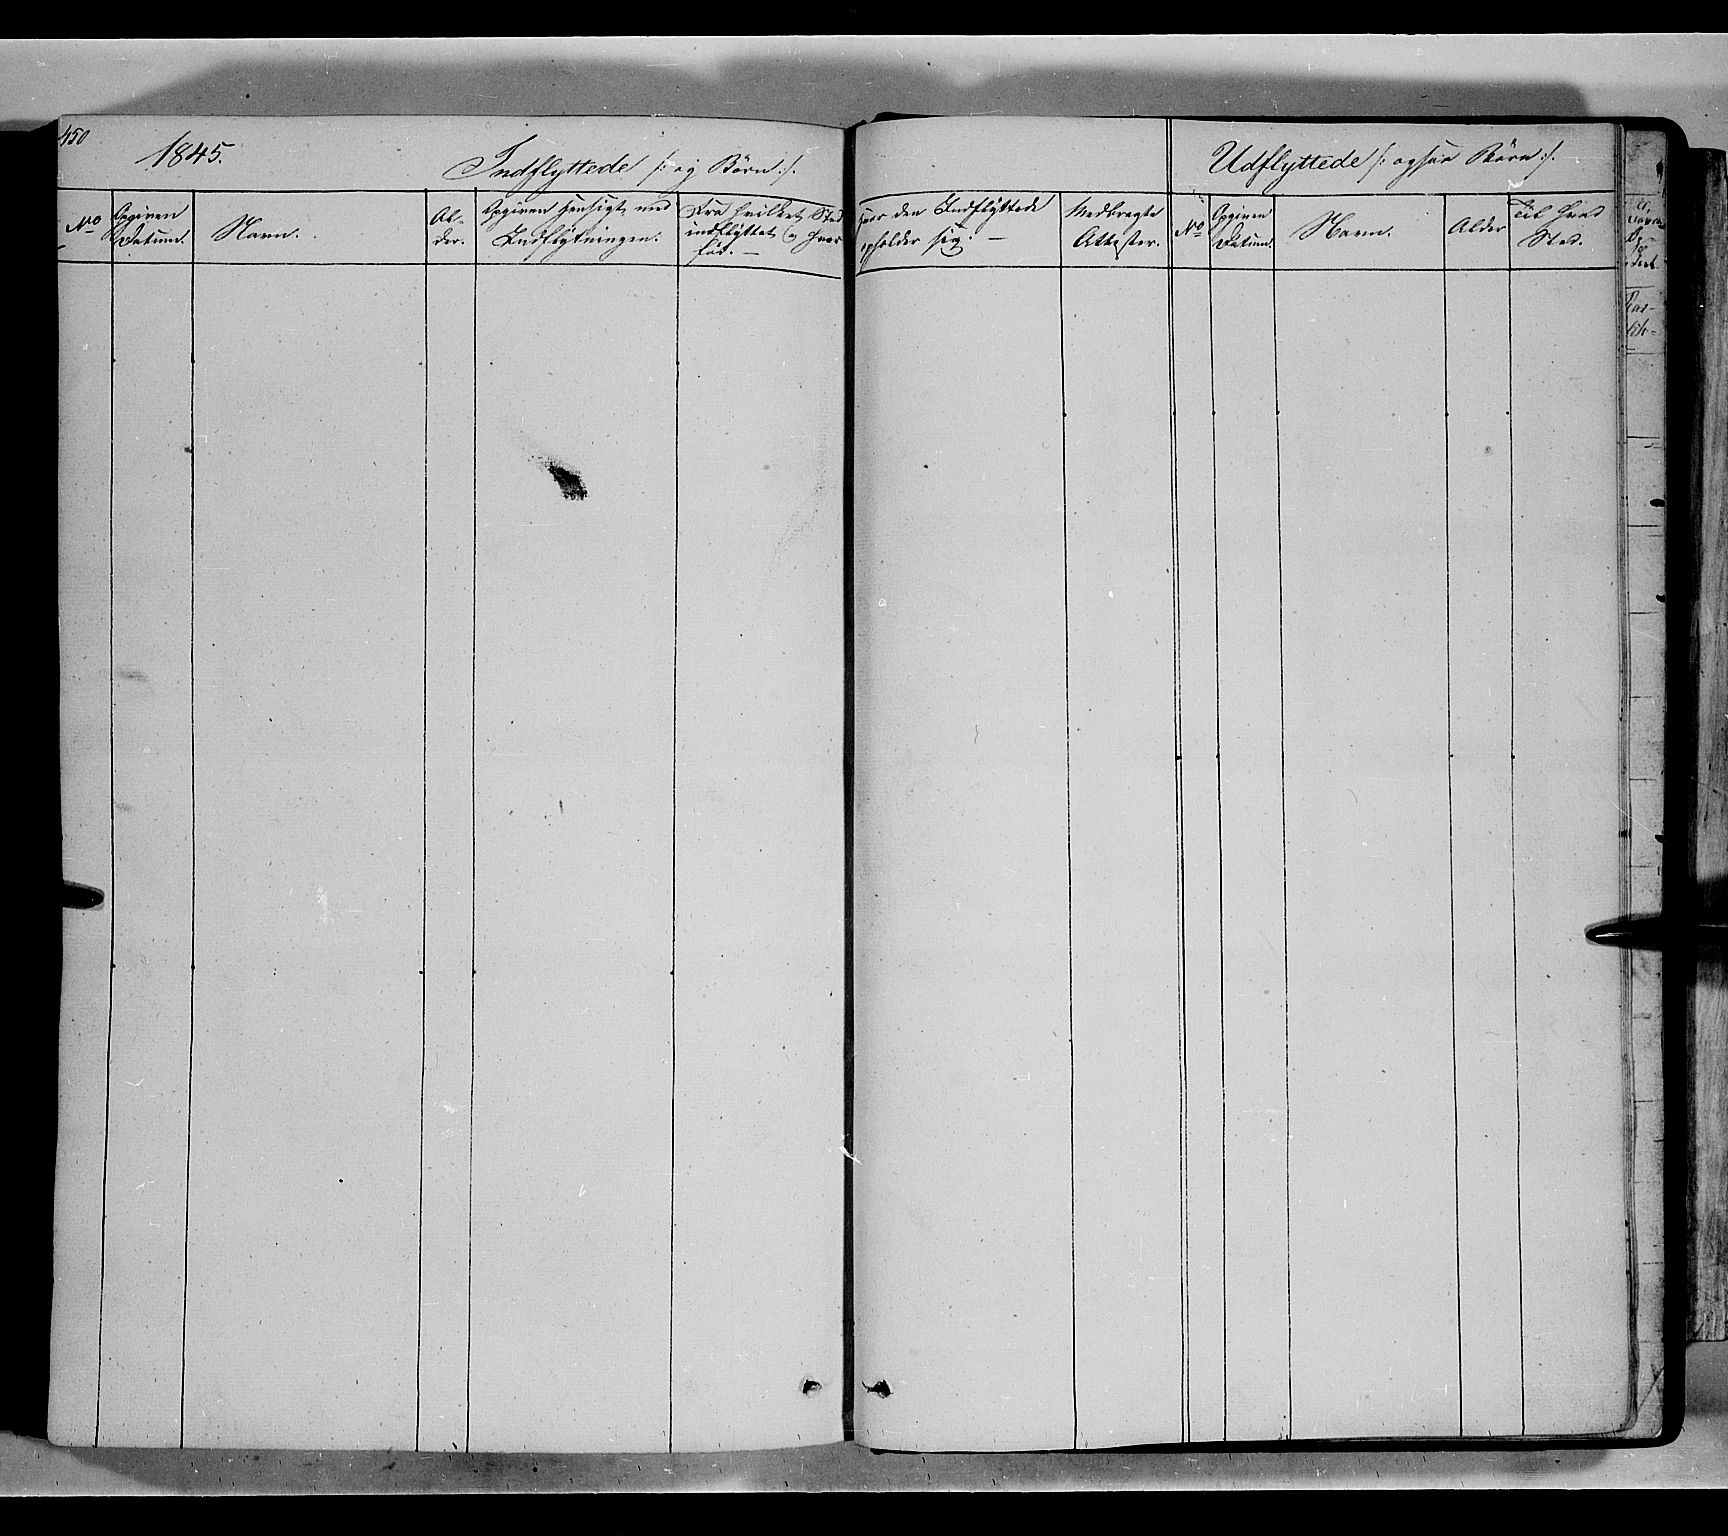 450
1845.
Indflyttede /: og Børn :/.
No
Opgiven
Datum.
Navn.
Al-
der.
Opgiven Hensigt med
Indflytningen.
Fra hvilket Sted
indflyttet og hvor
fød. —
Hvor den Indflyttede
opholder sig. —
Medbragte
Attester.
Udflyttede /: ogsaa Børn :/.
No
Opgiven
Datum.
Navn.
Alder
Til hvad
Sted.